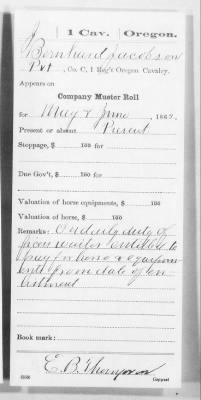 J 1 Cav. Oregon.
Bernhard Jacobson
Pvt, Co. C, 1 Reg't Oregon Cavalry.
Appears on
Company Muster Roll
for May & June, 1862.
Present or absent Present
Stoppage, $ 100 for
Due Gov't, $ 100 for
Valuation of horse equipments, $ 100
Valuation of horse, $ 100
Remarks: Orderly duty of
entitled to
pay for horse & equipm
ents from date of en
listment
Book mark:
E. B. Thompson
Copyist.